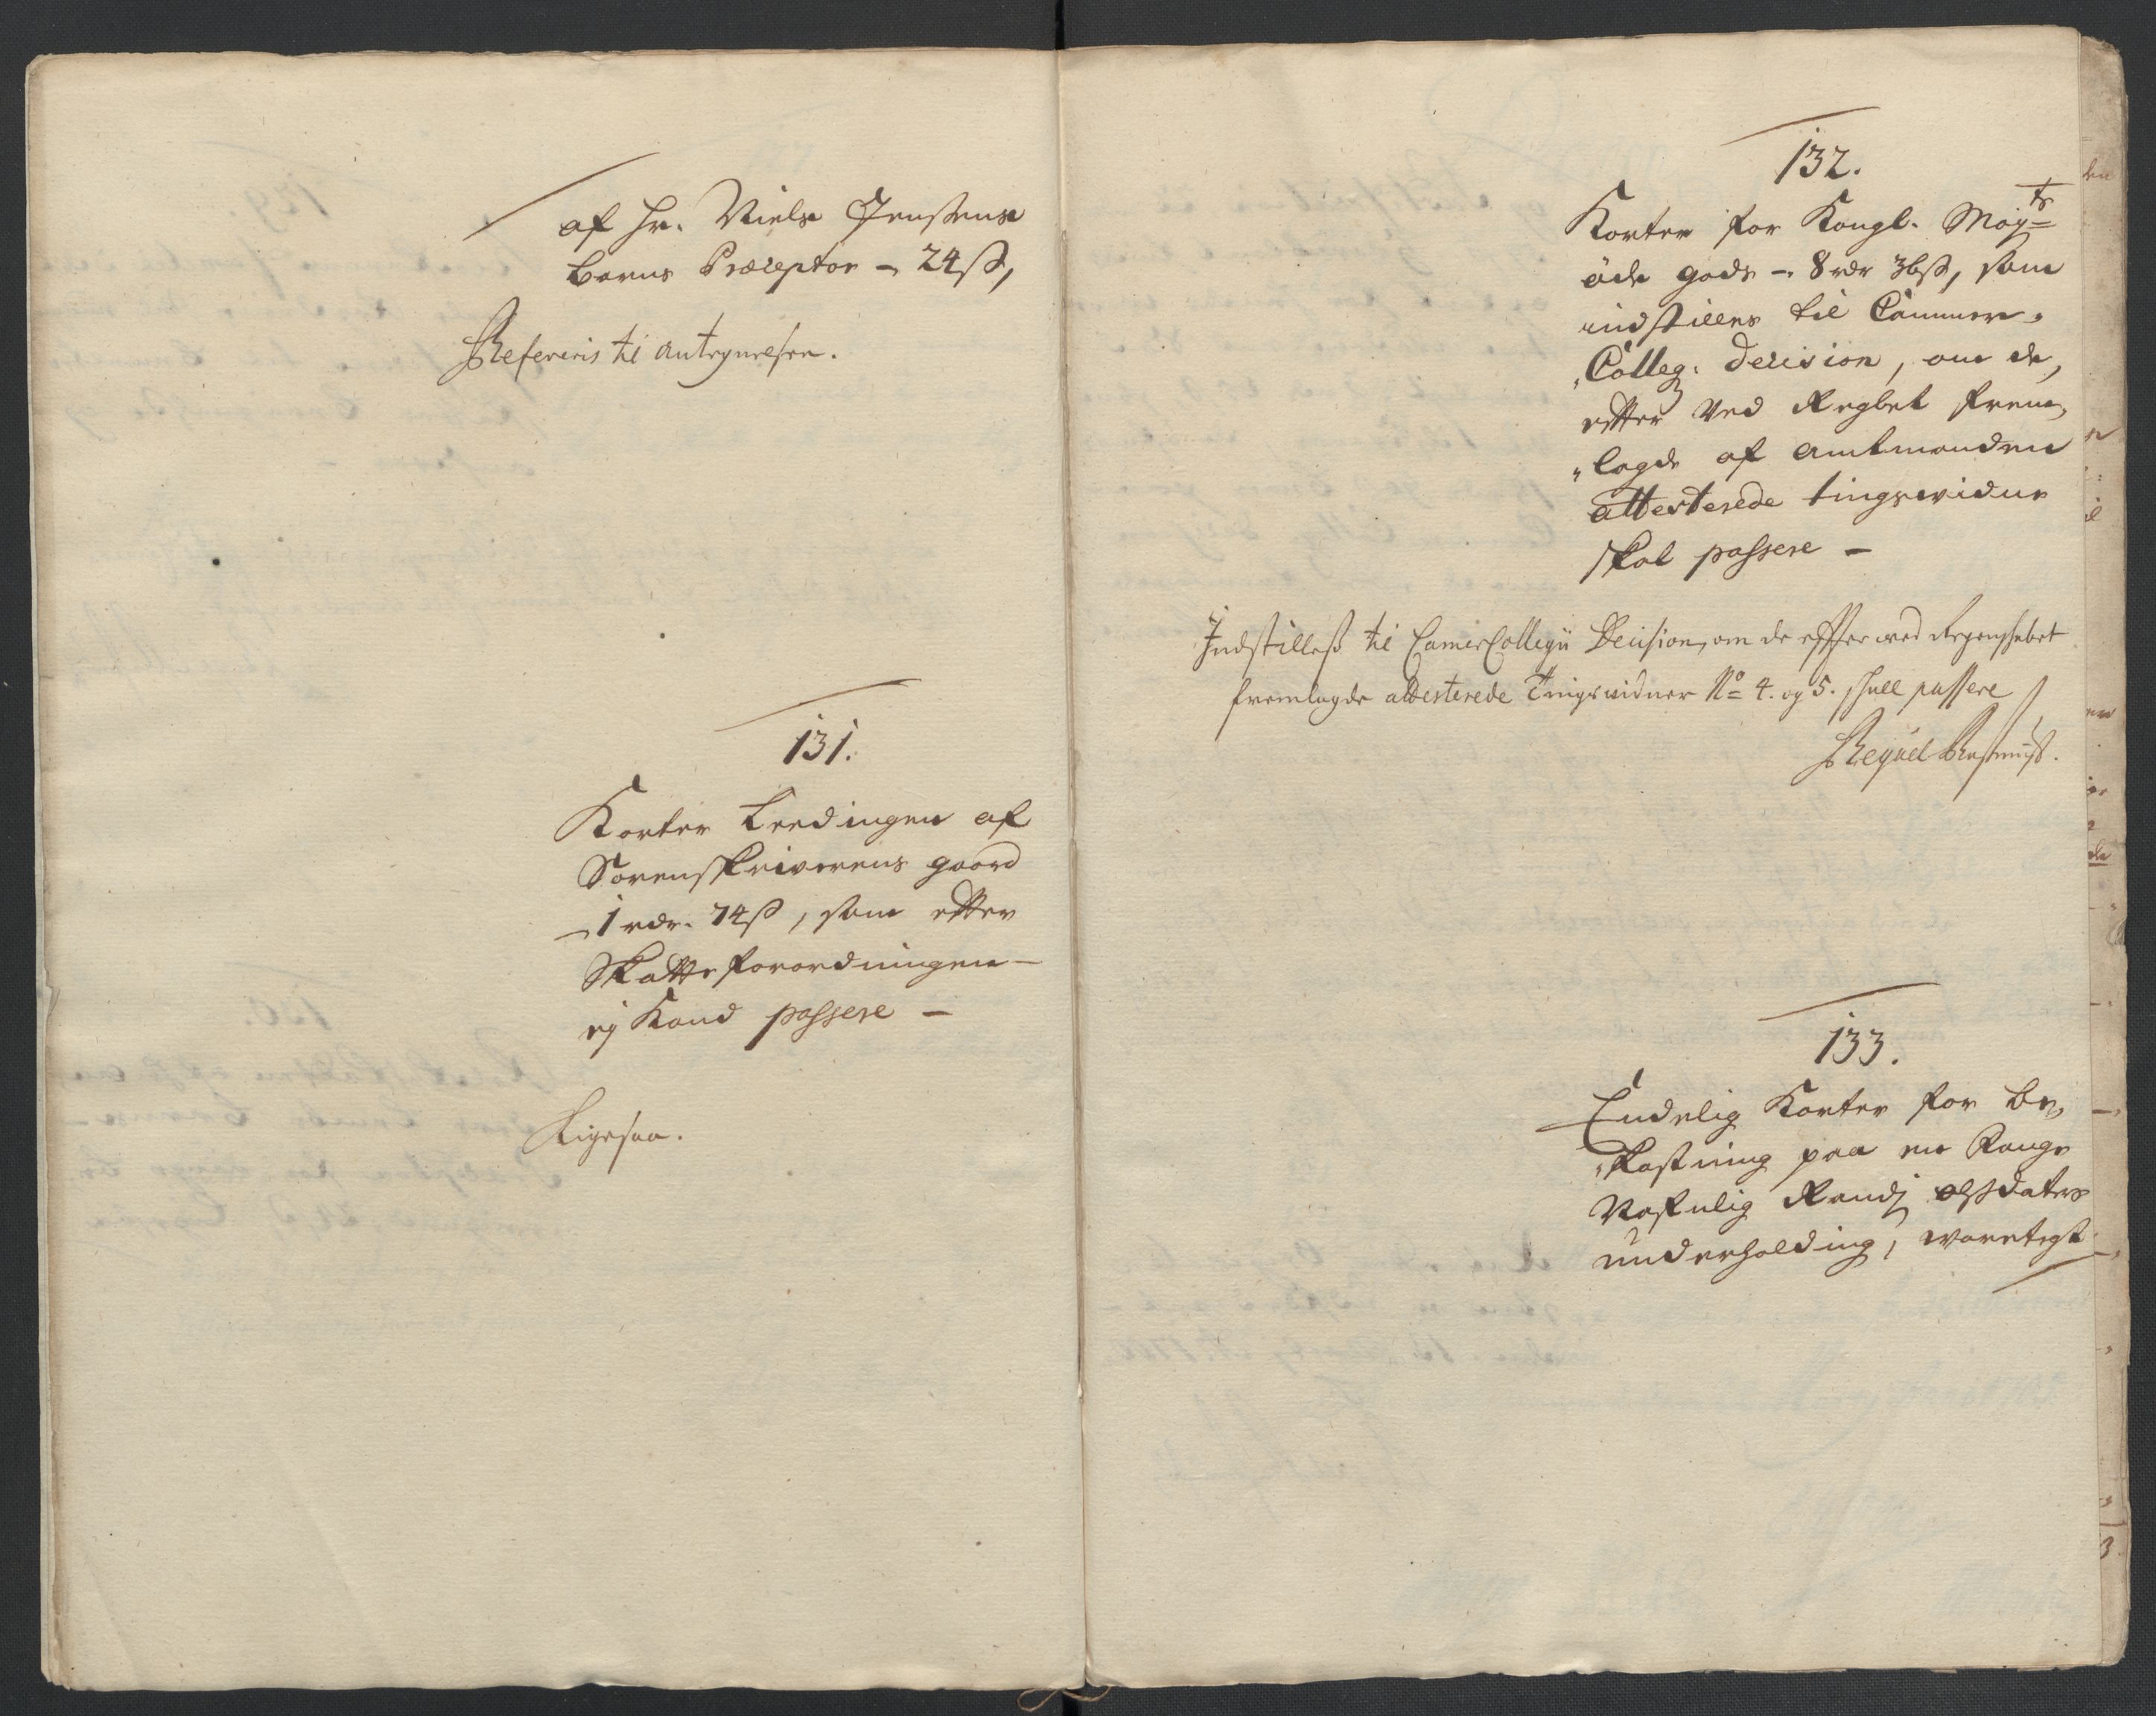 af hr. Niels Jensens
barns Præceptor – 24 ß,
Refereris til antegnelsen.
131.
Korter Leedingen af
Sorenskriverens gaard
– 1 rdr. 74 ß, som efter
Skatte forordningen –
ej Kand passere –
Ligesaa.
132.
Korter for Kongl. Mayts
øde gods – 8 rdr 36 ß, som
indstilles til Cammer-
Colleg: Decision, om de,
efter Ved Regbet frem-
lagde af amtmanden
attesterede tingsvidne
skal passere –
Indstilless til CamerCollegii Decision, om de efter ved Regenskabet
fremlagde attesterede Tingsvidner No 4. og 5. skull passere
133.
Endelig Korter for be-
kostning paa en Range
Vafulig Randj olssdaters
underholding, varetegt